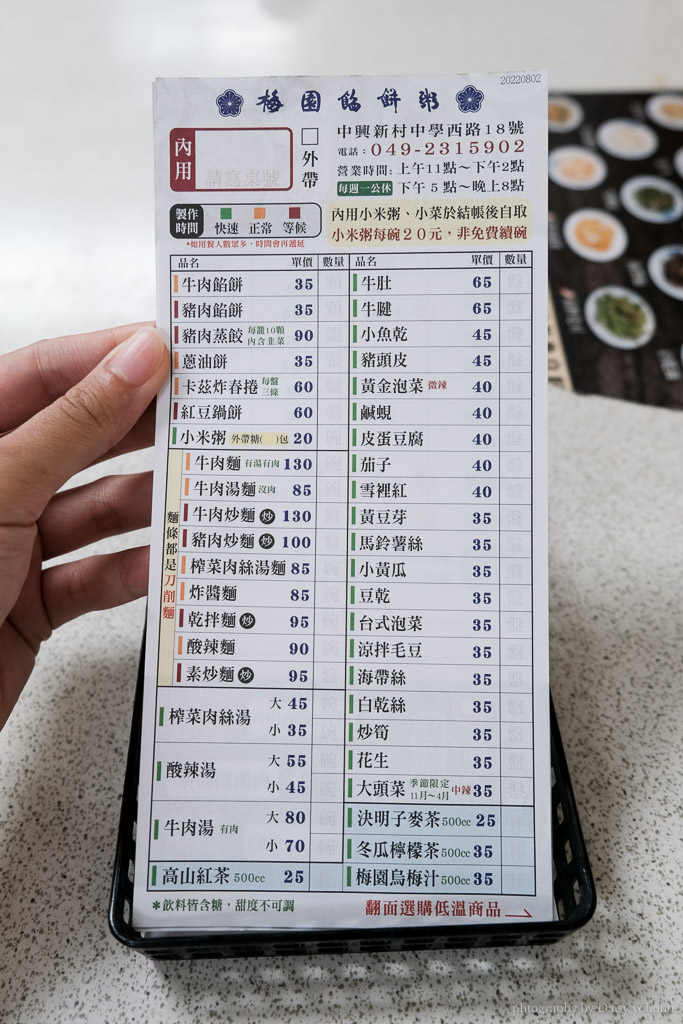 20220802
梅園餡餅粥
內用
請寫桌號
外帶
中興新村中學西路18號
電話：049-2315902
營業時間：上午11點～下午2點
每週一公休 下午5點～晚上8點
製作時間
快速 正常 等候
*如用餐人數眾多，時間會再遞延
內用小米粥、小菜於結帳後自取
小米粥每碗20元，非免費續碗
品名 單價 數量
牛肉餡餅 35
豬肉餡餅 35
豬肉蒸餃 每籠10顆 內含韭菜 90
蔥油餅 35
卡茲炸春捲 每盤三條 60
紅豆鍋餅 60
小米粥 外帶糖( )包 20
麵條都是刀削麵
牛肉麵 有湯有肉 130
牛肉湯麵 沒肉 85
牛肉炒麵 炒 130
豬肉炒麵 炒 100
榨菜肉絲湯麵 85
炸醬麵 85
乾拌麵 炒 95
酸辣麵 90
素炒麵 炒 95
榨菜肉絲湯 大 45
小 35
酸辣湯 大 55
小 45
牛肉湯 有肉 大 80
小 70
高山紅茶 500cc 25
品名 單價 數量
牛肚 65
牛腱 65
小魚乾 45
豬頭皮 45
黃金泡菜 微辣 40
鹹蜆 40
皮蛋豆腐 40
茄子 40
雪裡紅 40
黃豆芽 35
馬鈴薯絲 35
小黃瓜 35
豆乾 35
台式泡菜 35
涼拌毛豆 35
海帶絲 35
白乾絲 35
炒筍 35
花生 35
大頭菜 季節限定 11月～4月 中辣 35
決明子麥茶 500cc 25
冬瓜檸檬茶 500cc 35
梅園烏梅汁 500cc 35
*飲料皆含糖，甜度不可調
翻面選購低溫商品